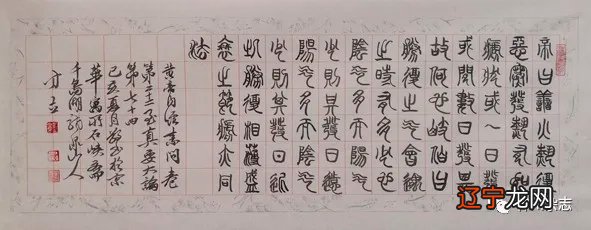 帝曰善火熱復
惡寒發熱有如
瘧狀或一日發
或間數日發其
故何也岐伯曰
勝復之氣會遇
之時有多少也
陰氣多而陽氣
少則其發日遠
陽氣多而陰氣
少則其發日近
此勝復相薄盛
衰之節瘧亦同
法
黄帝内经素问卷
第二十二至真要大論
第七十四
己亥夏月於京
千島湖山人
辽宁龙网
志